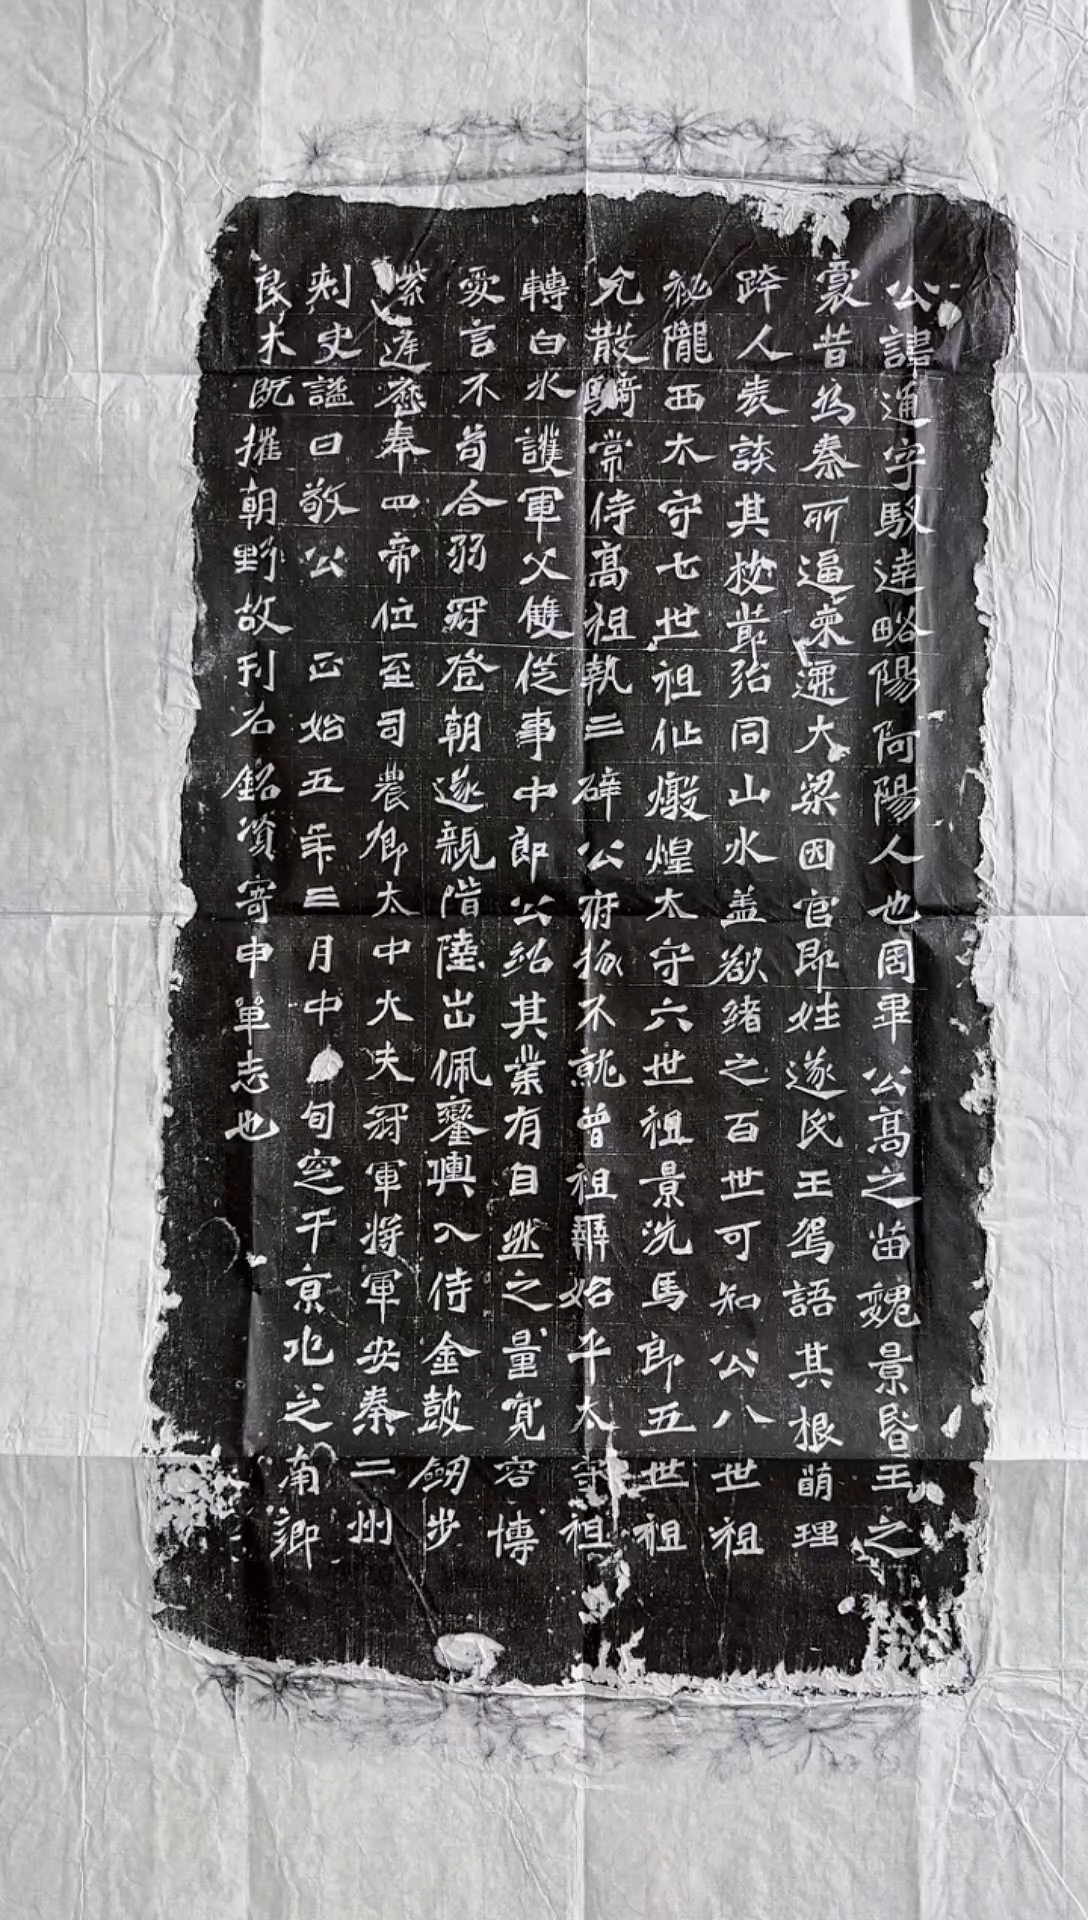 公諱通字馭達略陽阿陽人也周畢公高之苗魏景昬王之
裔昔為秦所逼東遷大梁因官即姓遂民王焉語其根萌理
跨人表談其枝節殆同山水盖欲緒之百世可知公八世祖
秘隴西太守七世祖仙燉煌太守六世祖景洗馬郎五世祖
允散騎常侍高祖執三辟公府掾不就曾祖彝始平太守祖
轉白水護軍父雙從事中郎公紹其業有自然之量寬容博
愛言不苟合弱冠登朝遂親階陸出佩鑾輿入侍金鼓劒步
紫遲歷奉四帝位至司農卿太中大夫冠軍將軍安秦二州
刺史謚曰敬公 正始五年三月中旬窆于京兆之南鄉
良木既摧朝野故刊石銘資寄申單志也